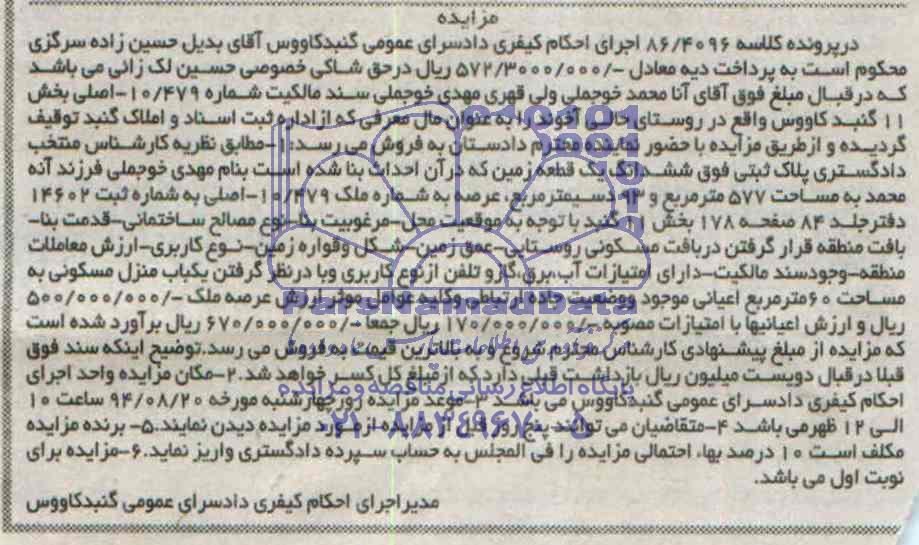 مزایده
درپرونده کلاسه ۸۶/۴۰۹۶ اجرای احکام کیفری دادسرای عمومی گنبدکاووس آقای بدیل حسین زاده سرگزی
محکوم است به پرداخت دیه معادل -/۵۷۲/۳۰۰۰/۰۰۰ ریال درحق شاکی خصوصی حسین لک زائی می باشد
که درقبال مبلغ فوق آقای آنا محمد خوجملی ولی قهری مهدی خوجملی سند مالکیت شماره ۱۰/۴۷۹-اصلی بخش
۱۱ گنبد کاووس واقع در روستای حالی آخوند را به عنوان مال معرفی که ازاداره ثبت اسناد و املاک گنبد توقیف
گردیده و ازطریق مزایده با حضور نماینده محترم دادستان به فروش می رسد:۱-مطابق نظریه کارشناس منتخب
دادگستری پلاک ثبتی فوق ششدانگ یک قطعه زمین که درآن احداث بنا شده است بنام مهدی خوجملی فرزند آنه
محمد به مساحت ۵۷۷ مترمربع و ۹۳ دسیمترمربع، عرصه به شماره ملک ۱۰/۴۷۹-اصلی به شماره ثبت ۱۴۶۰۲
دفترجلد ۸۴ صفحه ۱۷۸ بخش ۱۱ گنبد با توجه به موقعیت محل-مرغوبیت بنا-نوع مصالح ساختمانی-قدمت بنا-
بافت منطقه قرار گرفتن دربافت مسکونی روستایی-عمق زمین-شکل وقواره زمین-نوع کاربری-ارزش معاملات
منطقه-وجودسند مالکیت-دارای امتیازات آب،برق،گازو تلفن ازنوع کاربری وبا درنظر گرفتن یکباب منزل مسکونی به
مساحت ۶۰مترمربع اعیانی موجود ووضعیت جاده ارتباطی وکلیه عوامل موثر ارزش عرصه ملک -/۵۰۰/۰۰۰/۰۰۰
ریال و ارزش اعیانیها با امتیازات مصوبه -/۱۷۰/۰۰۰/۰۰۰ ریال جمعا -/۶۷۰/۰۰۰/۰۰۰ ریال برآورد شده است
که مزایده از مبلغ پیشنهادی کارشناس محترم شروع و به بالاترین قیمت به فروش می رسد.توضیح اینکه سند فوق
قبلا درقبال دویست میلیون ریال بازداشت قبلی دارد که از مبلغ کل کسر خواهد شد.۲-مکان مزایده واحد اجرای
احکام کیفری دادسرای عمومی گنبدکاووس می باشد ۳-موعد مزایده روزچهارشنبه مورخه ۹۴/۰۸/۲۰ ساعت ۱۰
الی ۱۲ ظهرمی باشد ۴-متقاضیان می توانند پنج روز قبل از مزایده ازمورد مزایده دیدن نمایند.۵- برنده مزایده
مکلف است ۱۰ درصد بهاء احتمالی مزایده را فی المجلس به حساب سپرده دادگستری واریز نماید.۶-مزایده برای
نوبت اول می باشد.
مدیراجرای احکام کیفری دادسرای عمومی گنبدکاووس
ParsNamadData
پایگاه اطلاع رسانی مناقصه ومزایده
۰۲۱-۸۸۳۴۹۶۷۰-۵